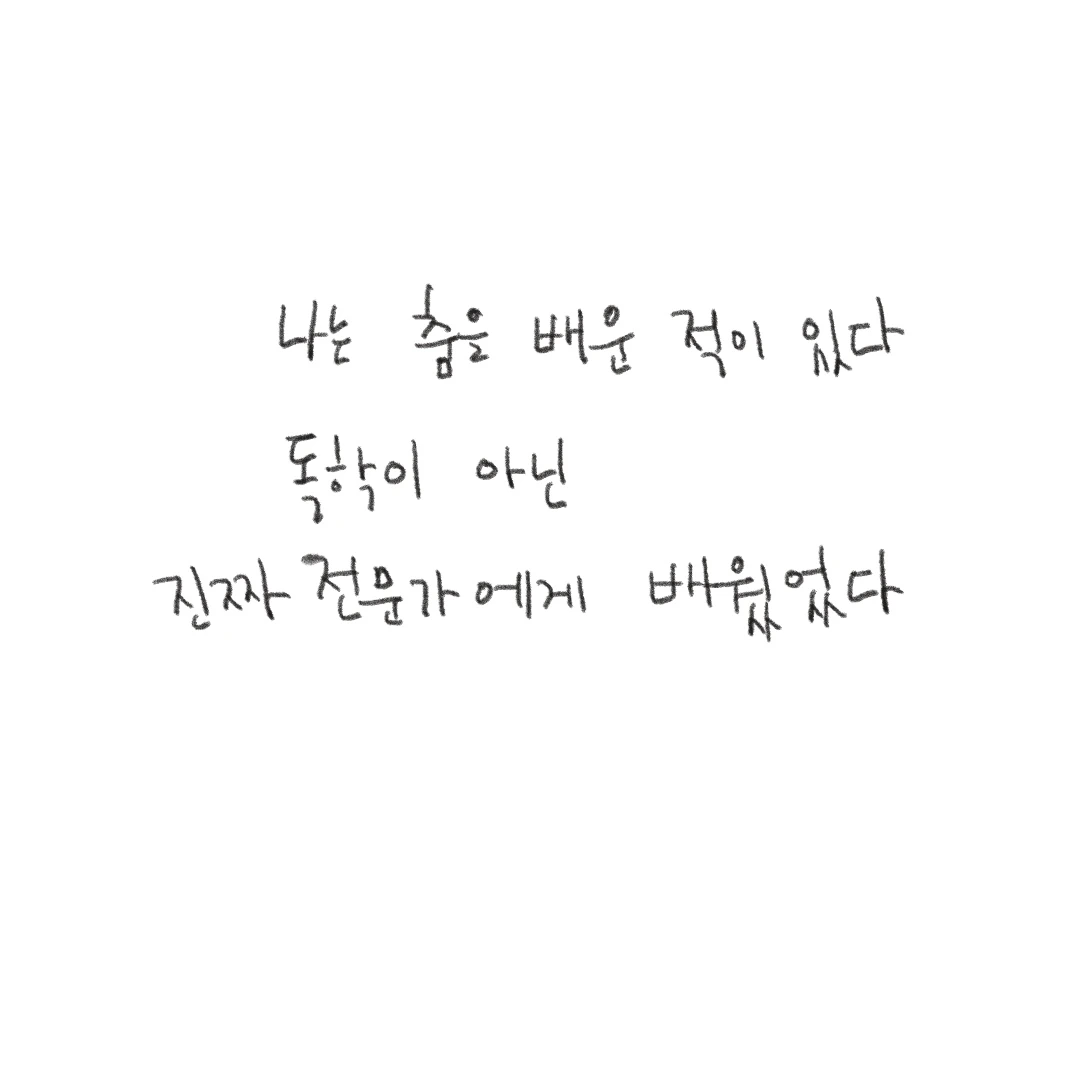 나는 춤을 배운 적이 있다
독학이 아닌
진짜 전문가에게 배웠었다